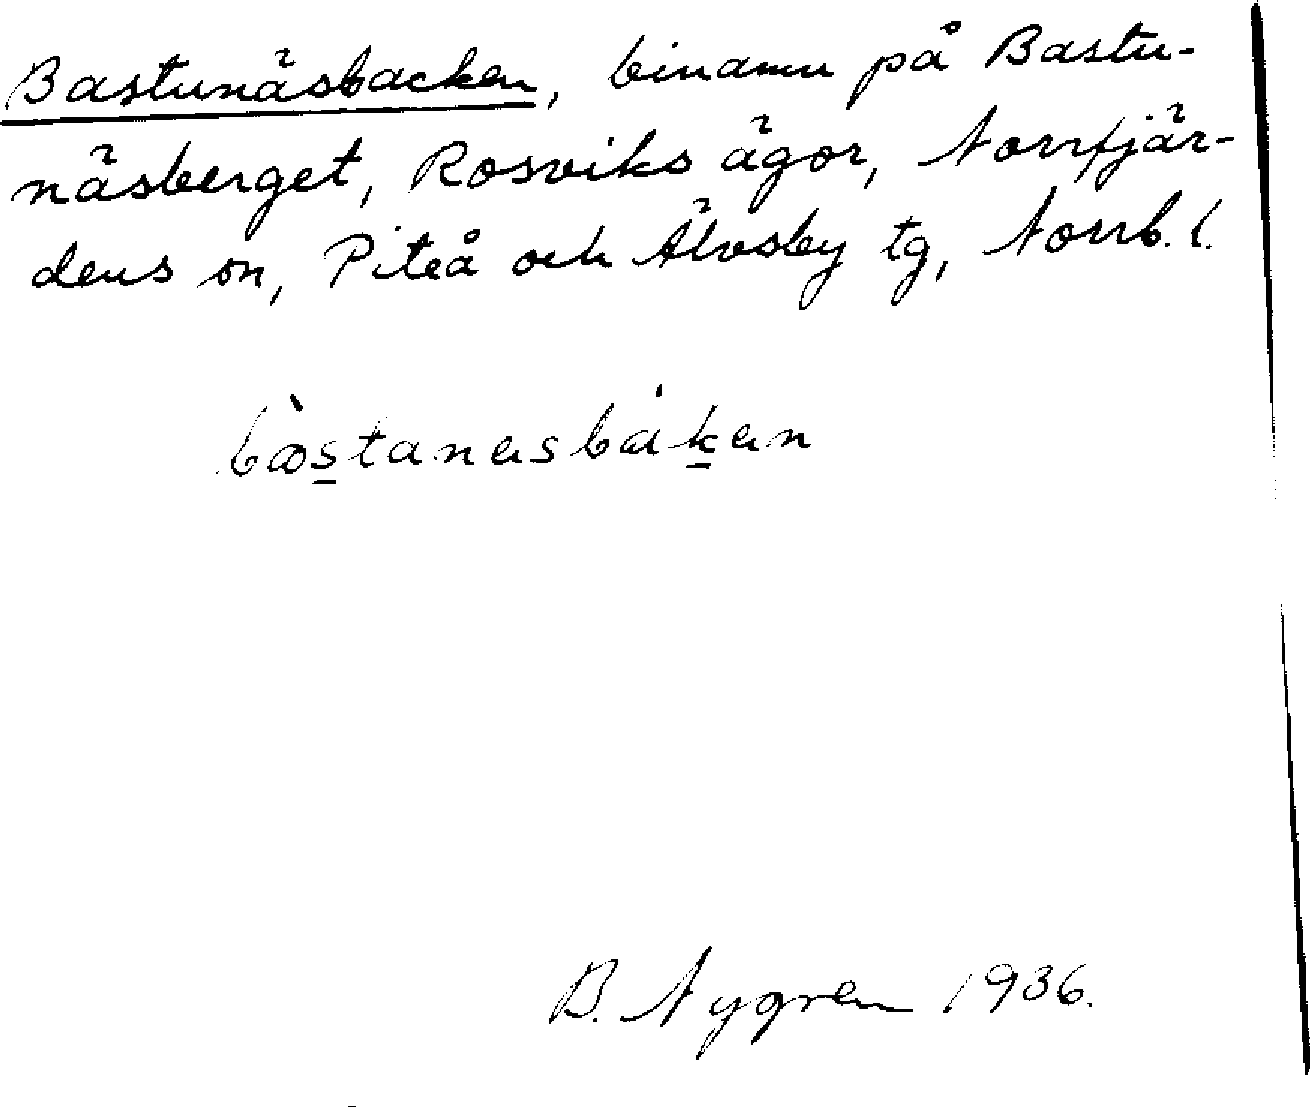 Bastunäsbacken, binamn på Bastu-
näsberget, Rosviks ägor, Norrfjär-
dens sn, Piteå och Älvsby tg, Norrb. l.
bòstanesbákan
B. Nygren 1936.